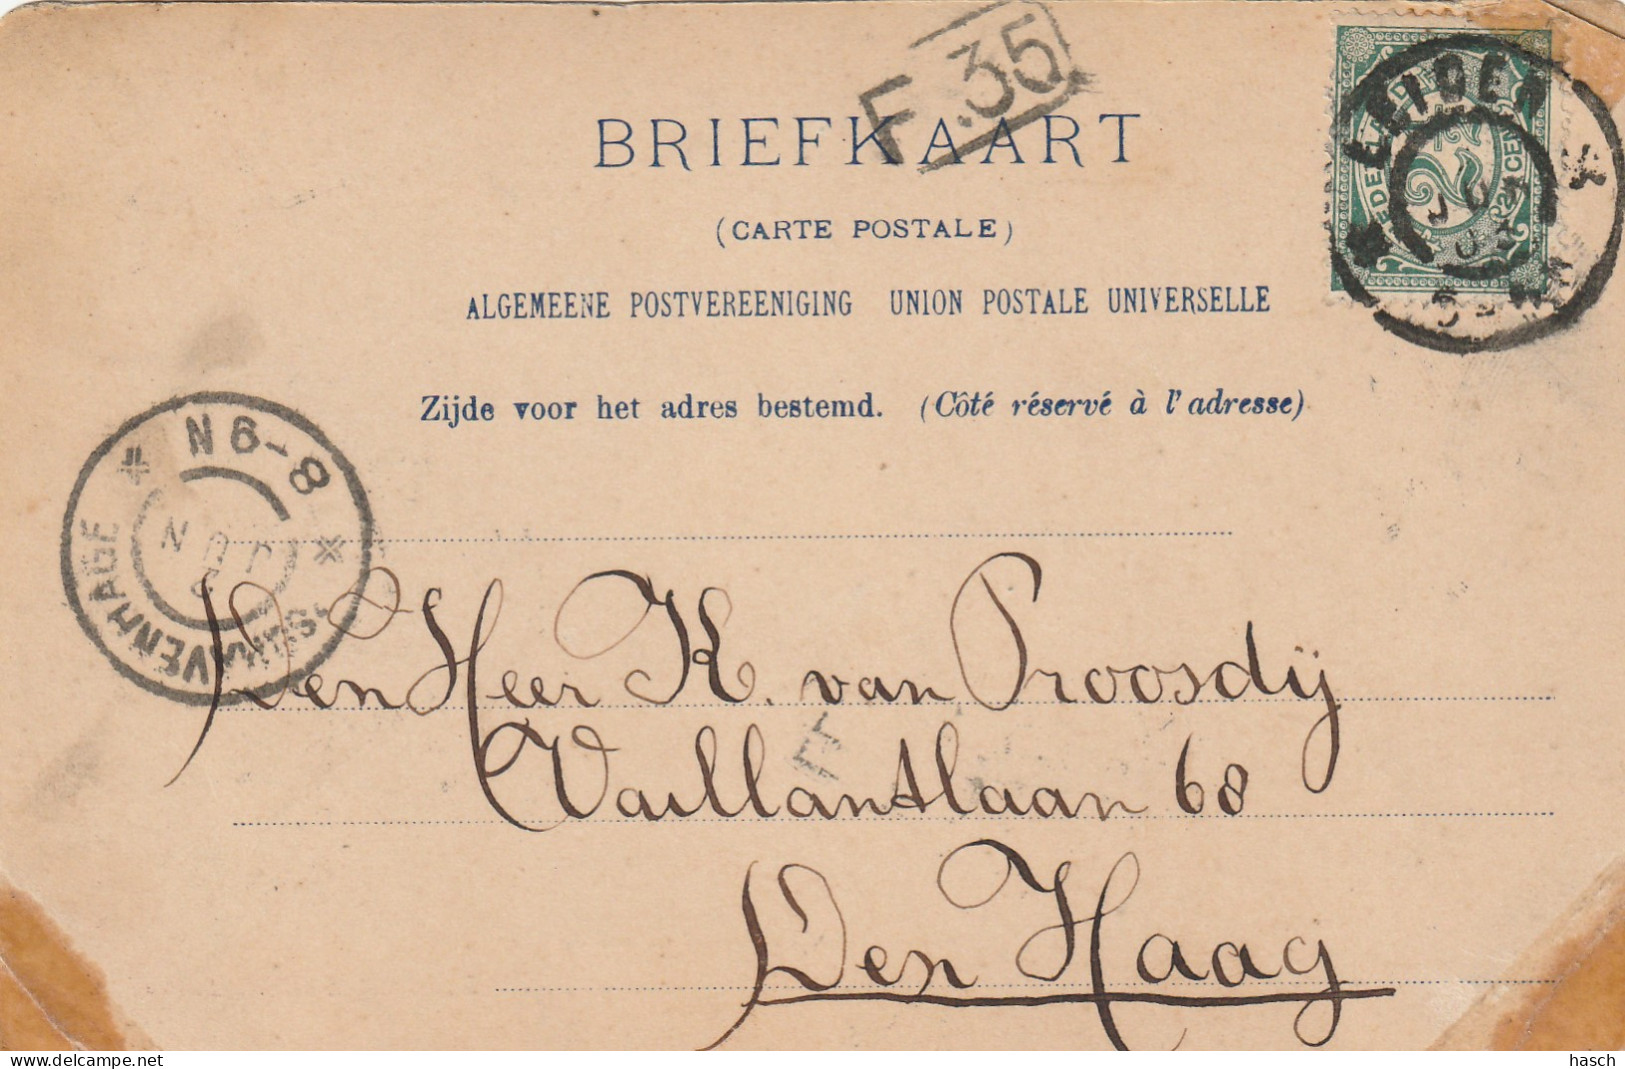 F.35
BRIEFKAART
(CARTE POSTALE)
ALGEMEENE POSTVEREENIGING UNION POSTALE UNIVERSELLE
Zijde voor het adres bestemd. (Côté réservé à l'adresse)
LEIDEN
N 6-8
'S-GRAVENHAGE
Den Heer K. van Proosdij
Vaillantlaan 68
Den Haag
hasch
delcampe.net